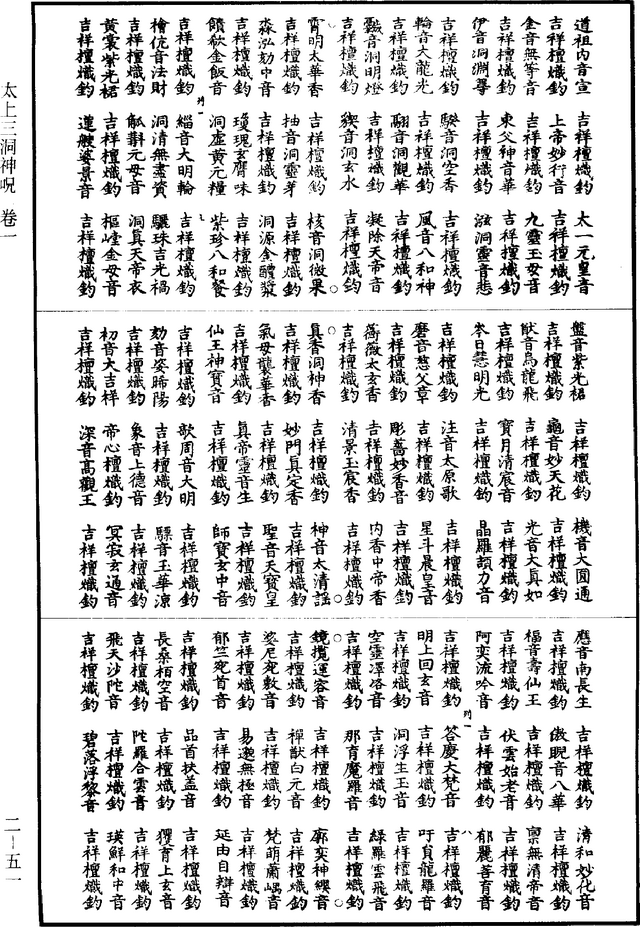 太上三洞神呪 卷一
二—五一
道祖内音宣 吉祥檀熾鈞 太一元皇音
吉祥檀熾鈞 上帝妙行音 吉祥檀熾鈞
金音無等音 吉祥檀熾鈞 九靈玉母音
吉祥檀熾鈞 東父神音華 吉祥檀熾鈞
伊音洞淵尊 吉祥檀熾鈞 洞靈音悲
吉祥檀熾鈞 騤音洞空香 吉祥檀熾鈞
輪音大龍光 吉祥檀熾鈞 風音八和神
吉祥檀熾鈞 翮音洞觀華 吉祥檀熾鈞
音洞明燈 吉祥檀熾鈞 凝除天帝音
吉祥檀熾鈞 音洞玄水 吉祥檀熾鈞
霄明太華香 吉祥檀熾鈞 核音洞微果
吉祥檀熾鈞 抽音洞靈芽 吉祥檀熾鈞
淼泓劾中音 吉祥檀熾鈞 洞源金醴漿
吉祥檀熾鈞 瓊瑰玄膺味 吉祥檀熾鈞
饋欻金飯音 洞虛黃元糧 紫珍八和餐
吉祥檀熾鈞 緇音大明輪 吉祥檀熾鈞
檜伉音法財 洞清無盡資 驪珠吉光褐
吉祥檀熾鈞 元母音 洞真天帝衣
黃裳紫光裙 吉祥檀熾鈞 樞金母音
吉祥檀熾鈞 蓮艘婆景音 吉祥檀熾鈞
盤音紫光裙 吉祥檀熾鈞 機音大圓通
吉祥檀熾鈞 龜音妙天花 吉祥檀熾鈞
猷音烏龍飛 吉祥檀熾鈞 光音大真如
吉祥檀熾鈞 寶月清宸音 吉祥檀熾鈞
本日慧明光 吉祥檀熾鈞 晶羅頡力音
吉祥檀熾鈞 注音太原歌 吉祥檀熾鈞
磨音慈父章 吉祥檀熾鈞 星斗晨皇音
吉祥檀熾鈞 彫蒿妙香音 吉祥檀熾鈞
薔薇太玄香 吉祥檀熾鈞 内香中帝香
吉祥檀熾鈞 清景玉宸香 吉祥檀熾鈞
真香洞神香 吉祥檀熾鈞 神音太清謠
吉祥檀熾鈞 妙門真定香 吉祥檀熾鈞
氣母襲華香 吉祥檀熾鈞 聖音天寶皇
吉祥檀熾鈞 真帝靈音生 吉祥檀熾鈞
仙王神寶音 吉祥檀熾鈞 師寶玄中音
吉祥檀熾鈞 歌周音大明 吉祥檀熾鈞
劾音姿晞陽 吉祥檀熾鈞 驃音玉華源
吉祥檀熾鈞 象音上德音 吉祥檀熾鈞
初音大吉祥 帝心檀熾鈞 冥寂玄通音
吉祥檀熾鈞 深音高觀王 吉祥檀熾鈞
應音南長生 吉祥檀熾鈞 清和妙化音
吉祥檀熾鈞 傲睨音八華 吉祥檀熾鈞
福音壽仙王 吉祥檀熾鈞 禀無清帝音
吉祥檀熾鈞 伏雲始老音 吉祥檀熾鈞
阿奕流吟音 吉祥檀熾鈞 郁麗善育音
吉祥檀熾鈞 答慶大梵音 吉祥檀熾鈞
明上回玄音 吉祥檀熾鈞 吁員龍羅音
吉祥檀熾鈞 洞浮生玉音 吉祥檀熾鈞
空靈澤洛音 吉祥檀熾鈞 綠羅雲飛音
吉祥檀熾鈞 那育魔羅音 吉祥檀熾鈞
鏡攬運容音 吉祥檀熾鈞 廓奕神纓音
吉祥檀熾鈞 禪猷白元音 吉祥檀熾鈞
婆尼宛數音 吉祥檀熾鈞 梵萌蕭嵎音
吉祥檀熾鈞 易邈無極音 吉祥檀熾鈞
郁竺宛首音 吉祥檀熾鈞 延由自辯音
吉祥檀熾鈞 品首扶蓋音 吉祥檀熾鈞
長桑栢空音 吉祥檀熾鈞 玃育上玄音
吉祥檀熾鈞 陀羅合雲音 吉祥檀熾鈞
飛天沙陀音 吉祥檀熾鈞 瑛鮮和中音
吉祥檀熾鈞 碧落浮黎音 吉祥檀熾鈞